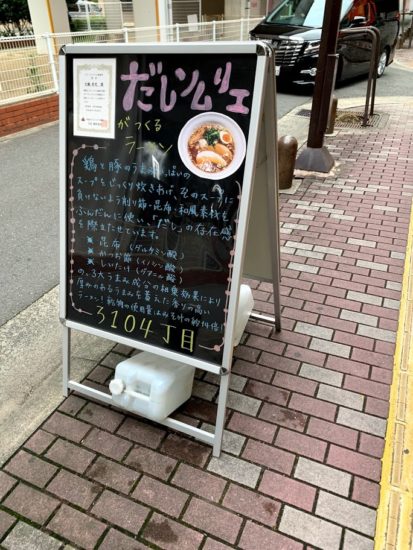 だしソムリエ
がつくる
ラーメン
鶏と豚のうまみいっぱいの
スープをじっくり炊きあげ、そのスープに
負けないよう削り節・昆布・和風素材も
ふんだんに使い、「だし」の存在感
を際立たせています。
※ 昆布 (グルタミン酸)
※ かつお節 (イノシン酸)
※ しいたけ (グアニル酸)
の、3大うまみ成分の相乗効果により
厚みのあるうまみを蓄えた香りの高い
ラーメン! 乾物の使用量はみそ汁の約4倍!
〜3104丁目